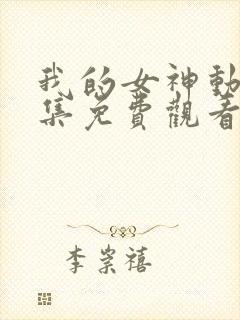 我的女神動
集免費觀看
李崇禧